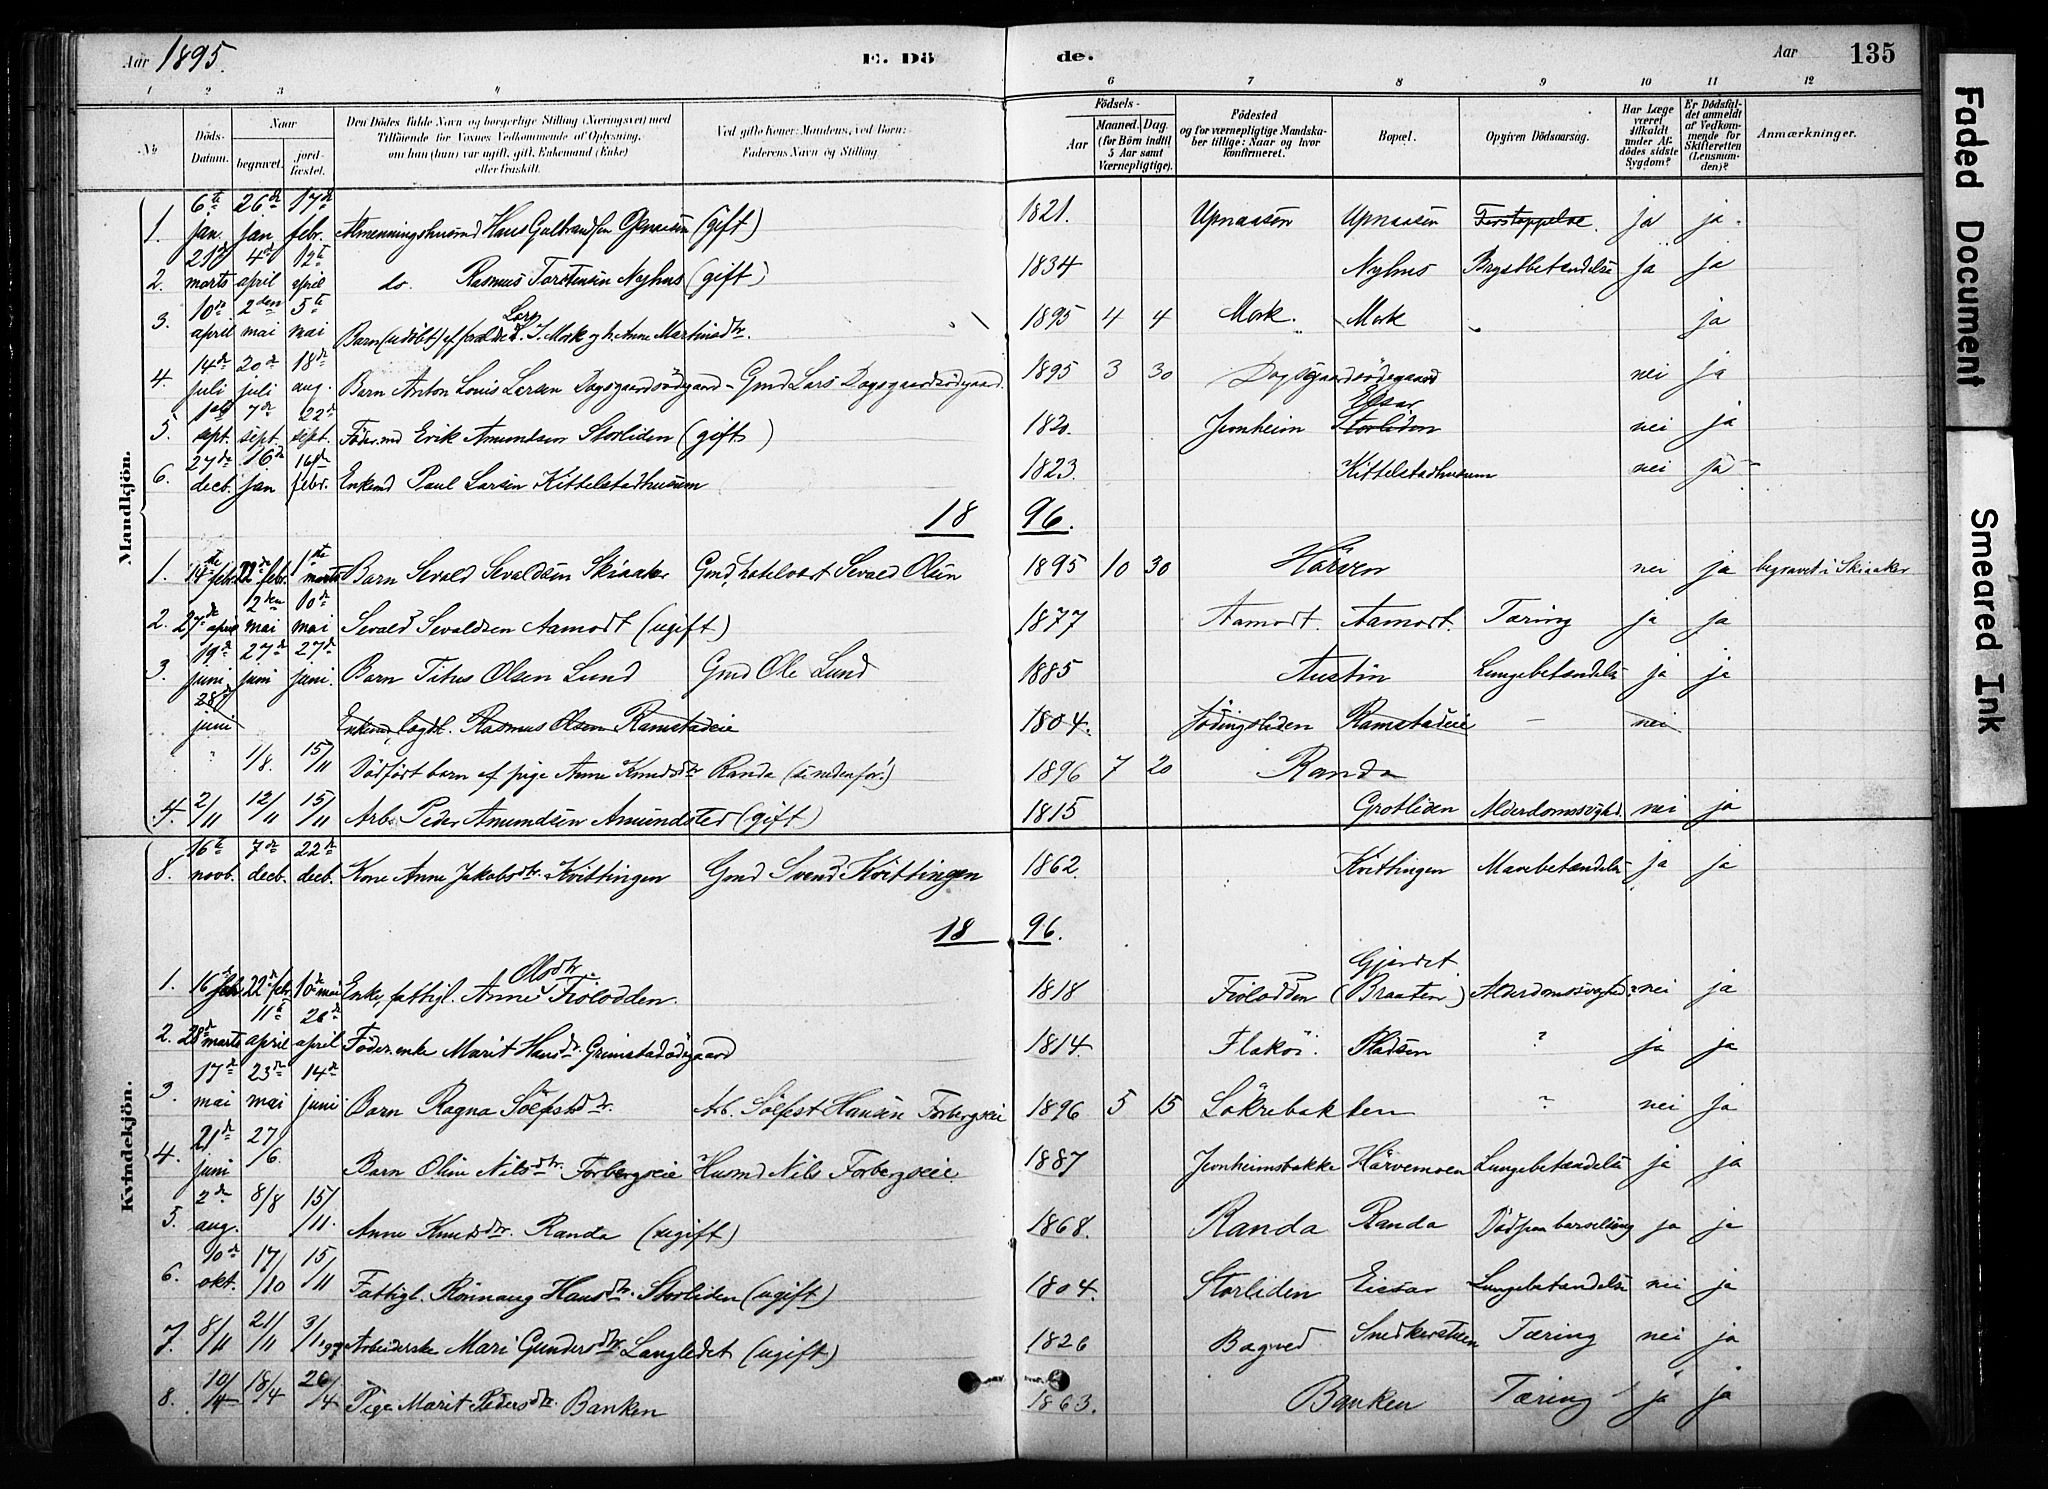 Aar 1895. E. Dö de. Aar 135
1 2 3 4 5 6 7 8 9 10 11 12
No. Döds-Datum. Naar begravet. jord-fæstet. Den Dödes fulde Navn og borgerlige Stilling (Næringsvei) med Tilföiende for Voxnes Vedkommende af Oplysning, om han (hun) var ugift, gift, Enkemand (Enke) eller fraskilt. Ved gifte Koner: Mandens, ved Börn: Faderens Navn og Stilling. Födsels- Aar Maaned. Dag. (for Börn indtil 5 Aar samt Værnepligtige). Födested og for værnepligtige Mandskaber tillige: Naar og hvor konfirmeret. Bopæl. Opgiven Dödsaarsag. Har Læge været tilkaldt under Afdödes sidste Sygdom? Er Dödsfaldet anmeldt af Vedkommende for Skifteretten (Lensmanden)? Anmærkninger.
Mandkjön.
1. 6te jan. 26de jan 17de febr. Almenningshusmd Hans Gulbrandsen Opnaasen (gift) 1821. Upnaasen Upnaasen Forstoppelse. ja ja
2. marts 4de april 12te april do. Rasmus Torstensen Nyhus (gift) 1834 Nyhus Brystbetændelse ja ja
3. 10de april 2den mai 5te mai Barn (udöbt) af Lars I. Mork og h. Anne Martinsdtr. 1895 4 4 Mork. Mork ja
4. 14de juli 20de juli 18de aug. Barn Anton Louis Larsen Dagsgaardsödegaard - Gmd Lars Dagsgaardsödegaard 1895 3 30 Dagsgaardsödegaard nei ja
5. sept. 7de sept. 22de sept. Föder.md Erik Amundsen Storliden (gift) 1820. Jonheim Storliden nei ja
6. 27de decb. 16de jan febr. Enkemd Paul Larsen Kittelstadhusum 1823. Kittelstadhusum nei ja
18 96.
1. 14de febr. 22de febr. 1ste marts Barn Sevald Sevaldsen Skiaaker Gmd, hotelvært Sevald Olsen 1895 10 30 Hårven nei ja begravet i Skiaaker
2. 27de april 2den mai 10de mai Sevald Sevaldsen Aamodt (ugift) 1877 Aamodt. Aamodt. Tæring ja ja
3. 19de juni 27de juni 27de juni. Barn Titus Olsen Lund Gmd Ole Lund 1885 Austin Lungebetændelse ja ja
28de juni Enkemd, lægdl. Rasmus Olsen Ramstadeie 1804. Ramstadeie — nei
" 1/8. 15/11 Dödfört barn af pige Anne Knudsdtr Randa (se nedenfor!) 1896 7 20 Randa
4. 2/11 12/11 15/11 Arb. Peder Amundsen Amundster (gift) 1815 Grotliden Alderdomssvaghd. nei ja
Kvindekjön.
8. 16de novb. 7de decb. 22de decb. Kone Anne Jakobsdtr. Kvittingen Gmd Svend Kvittingen 1862. Kvittingen Mavebetændelse ja ja
18 96.
1. 16de febr. 22de febr. 10de mai Enke, fattigl. Anne Olsdtr. Fiolodden. 1818 Fiolodden Gjerdet (Braaten) Alderdomssvaghed? nei ja
2. 28de marts 11te april 26de april Föder.enke Marit Hansdtr. Grimstadödegaard 1814. Flaköi. Pladsen ? ja ja
3. 17de mai 23de mai 14de juni Barn Ragna Sölfestdtr. Arb. Sölfest Hansen Forbergseie 1896 5 15 Låkrebakken ? nei ja
4. 21de juni 27/6. Barn Oline Nilsdtr. Forbergseie Husmd Nils Forbergseie. 1887 Jonheimsbakke Hårvemoen Lungebetændelse ja ja
5. 2de aug. 8/8 15/11. Anne Knudsdtr. Randa (ugift) 1868. Randa Randa Död paa barselseng ja ja
6. 10de okt. 17/10 15/11 Fattigl. Rönnaug Hansdtr. Storliden (ugift) 1804. Storliden Lungebetændelse nei ja
7. 8/11 21/11 3/1 97 Arbeiderske Mari Gundersdtr. Langledet (ugift) 1826 Bagved Snekkersteen Tæring nei ja
8. 10/4 18/4 26/4 Pige Marit Pedersdtr. Banken 1863. Banken Tæring ja ja
Faded Document
Smeared Ink